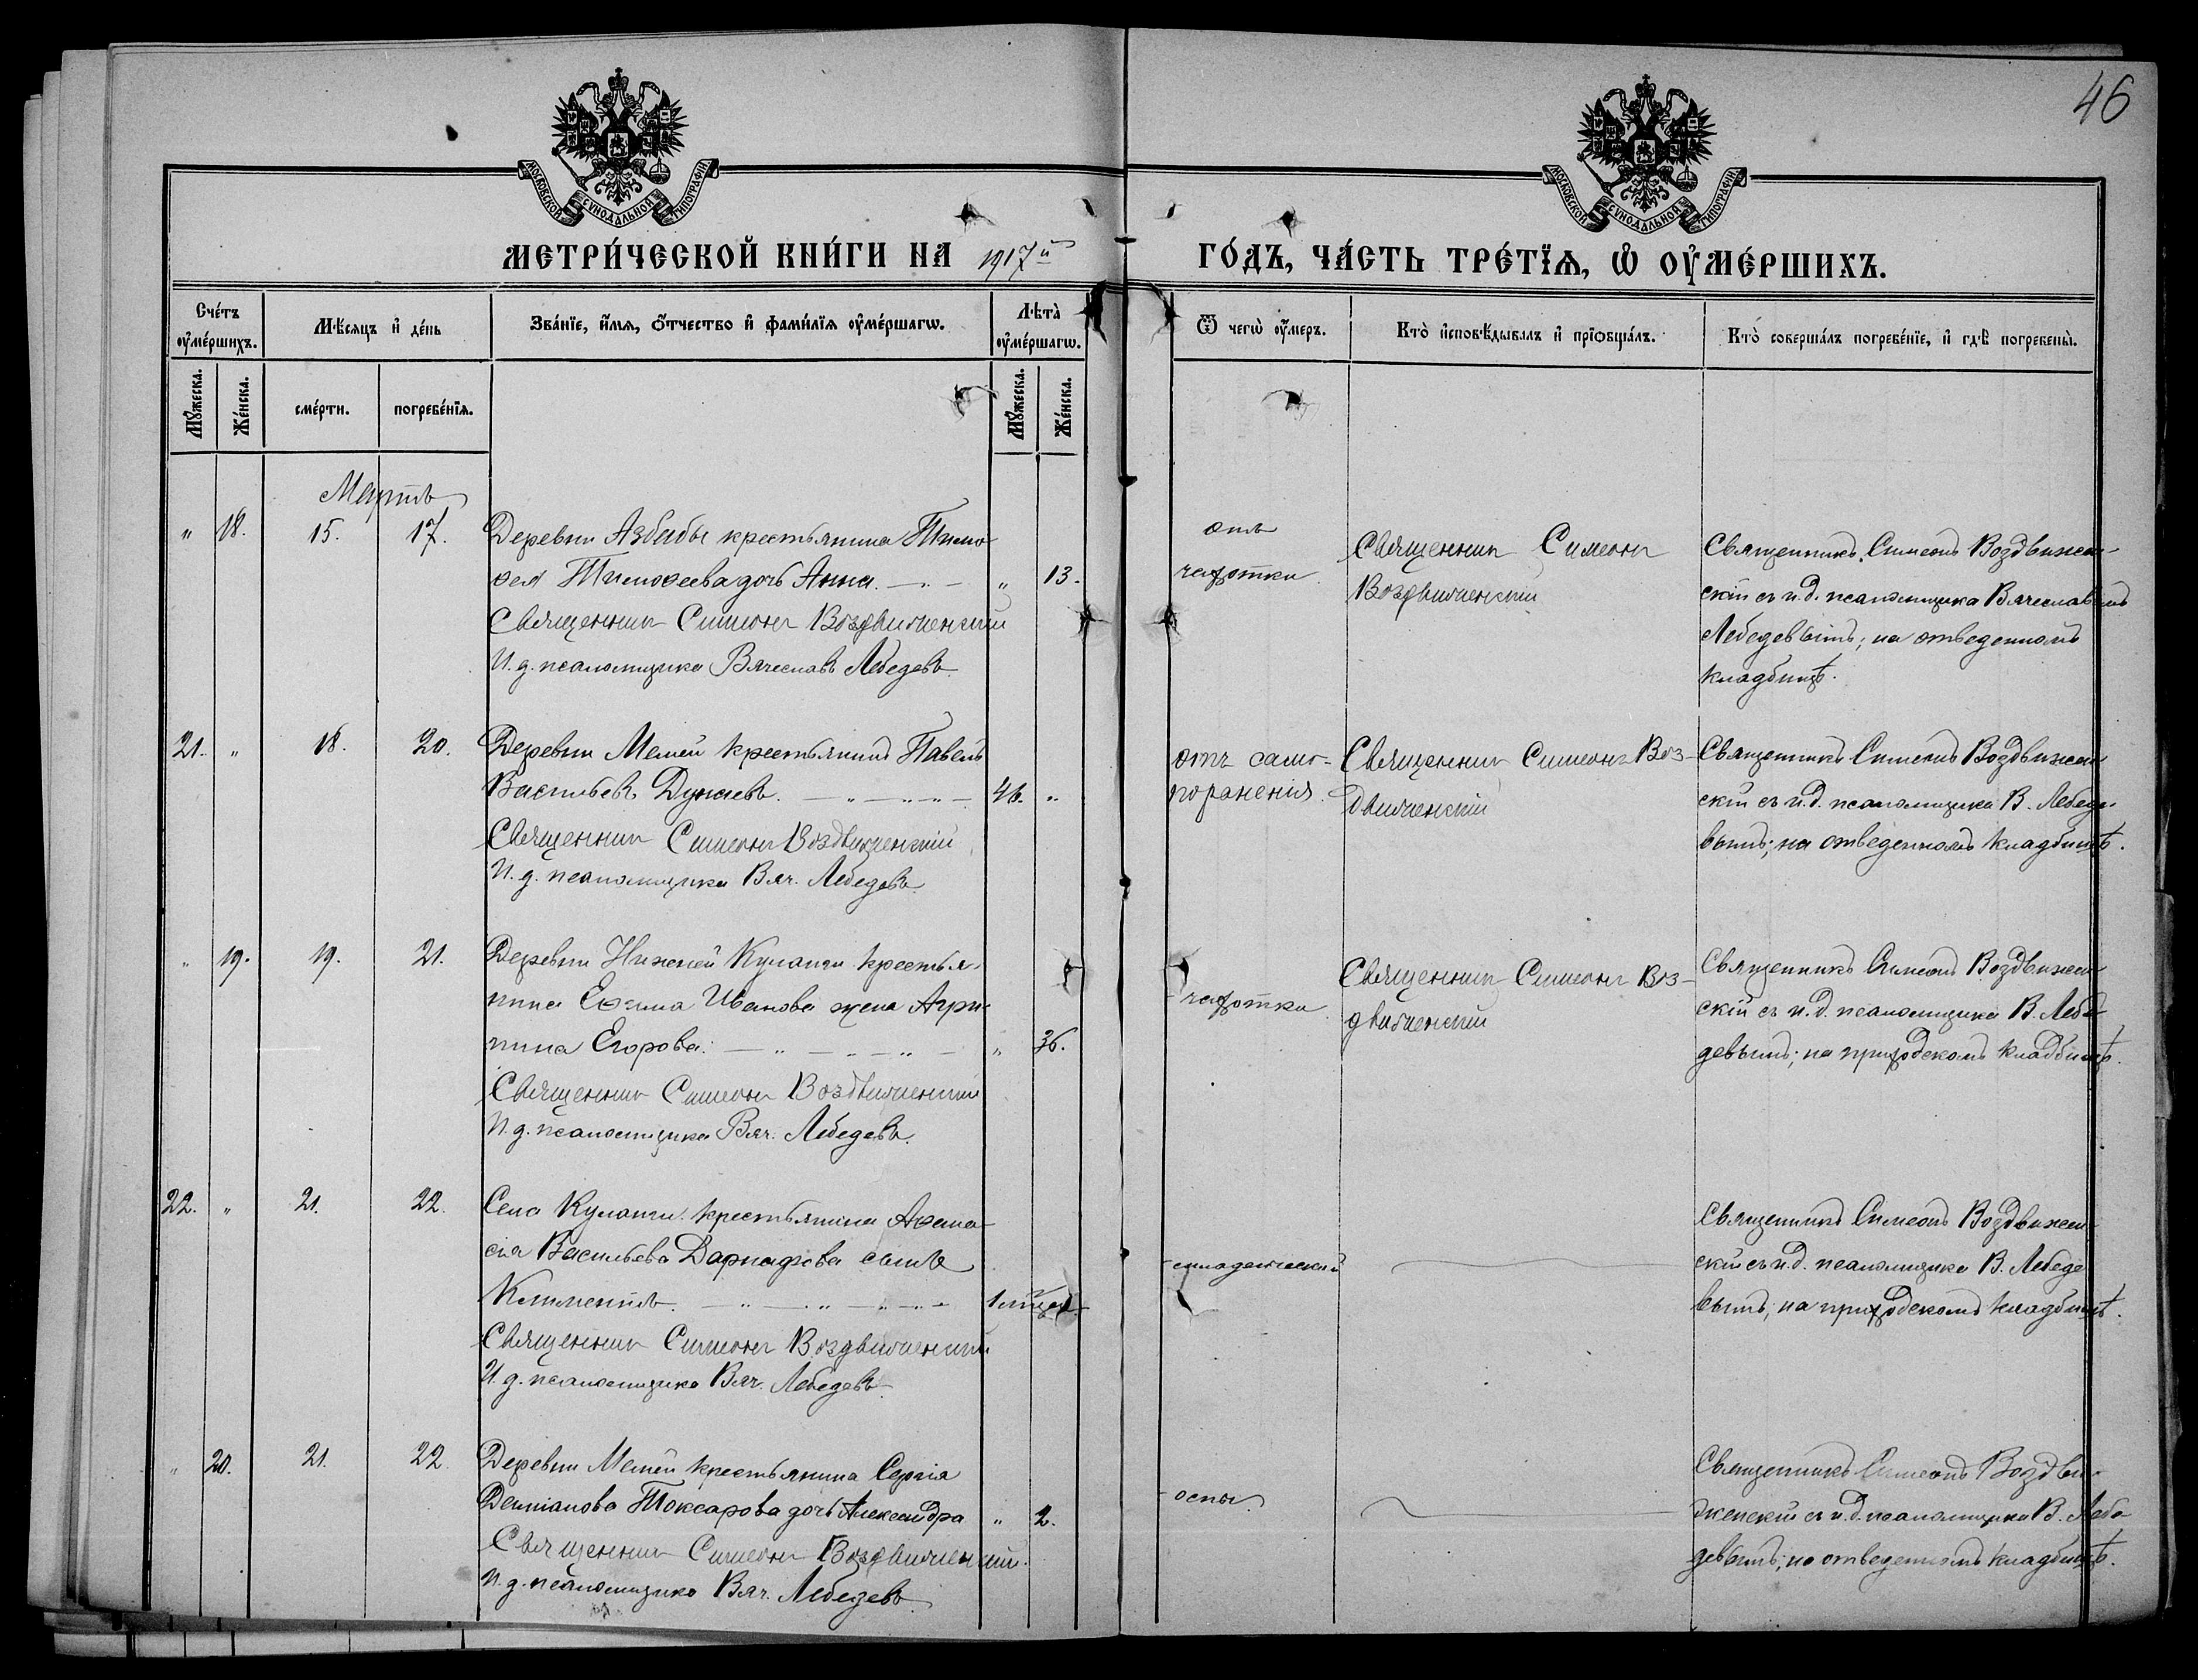 46
МОСКОВСКОЙ СѴНОДАЛЬНОЙ ТИПОГРАФІИ
МОСКОВСКОЙ СѴНОДАЛЬНОЙ ТИПОГРАФІИ
МЕТРИ́ЧЕСКОЙ КНИ́ГИ НА 1917й ГО́ДЪ, ЧА́СТЬ ТРЕ́ТЇѦ, Ѡ҆ ОУ҆МЕ́РШИХЪ.
Сче́тъ оу҆ме́ршихъ.
Мѣ́сяцъ и҆ де́нь
Зва́нїе, и҆́мѧ, ѻ҆́тчество и҆ фами́лїѧ оу҆ме́ршагѡ.
Лѣ́та оу҆ме́ршагѡ.
Ѿ чегѡ̀ оу҆́меръ.
Кто̀ и҆сповѣ́дывалъ и҆ прїѡбща́лъ.
Кто̀ соверша́лъ погребе́нїе, и҆ гдѣ̀ погребены̀.
Мꙋ́жеска.
Же́нска.
сме́рти.
погребе́нїѧ.
Мꙋ́жеска.
Же́нска.
Мартъ
" 18. 15. 17.
Деревни Азбабы крестьянина Тимо-
ѳея Тимоѳеева дочь Анна. " 13.
Священникъ Симеонъ Воздвиженскій
И. д. псаломщика Вячеславъ Лебедевъ
отъ
чахотки.
Священникъ Симеонъ
Воздвиженскій
Священникъ Симеонъ Воздвижен-
скій съ и. д. псаломщика Вячеславомъ
Лебедевымъ; на отведенномъ
кладбищѣ.
21. " 18. 20.
Деревни Мемей крестьянинъ Павелъ
Васильевъ Дунаевъ. 46. "
Священникъ Симеонъ Воздвиженскій
И. д. псаломщика Вяч. Лебедевъ
отъ само-
пораненія.
Священникъ Симеонъ Воз-
движенскій
Священникъ Симеонъ Воздвижен-
скій съ и. д. псаломщика В. Лебеде-
вымъ; на отведенномъ кладбищѣ.
" 19. 19. 21.
Деревни Нижней Куланги крестья-
нина Еѳима Иванова жена Агри-
пина Егорова. " 36.
Священникъ Симеонъ Воздвиженскій
И. д. псаломщика Вяч. Лебедевъ.
чахотки
Священникъ Симеонъ Воз-
движенскій
Священникъ Симеонъ Воздвижен-
скій съ и. д. псаломщика В. Лебе-
девымъ; на приходскомъ кладбищѣ.
22. " 21. 22.
Села Куланги крестьянина Аѳана-
сія Васильева сынъ
Климентъ.
Священникъ Симеонъ Воздвиженскій
И. д. псаломщика Вяч. Лебедевъ
младенческой
Священникъ Симеонъ Воздвижен-
скій съ и. д. псаломщика В. Лебеде
вымъ; на приходскомъ кладбищѣ.
" 20. 21. 22.
Деревни Мемей крестьянина Сергія
Даміанова Токсарова дочь Александра " 2.
Священникъ Симеонъ Воздвиженскій
И. д. псаломщика Вяч. Лебедевъ
оспы
Священникъ Симеонъ Воздви-
женскій съ и. д. псаломщика В. Лебе
девымъ; на отведенномъ кладбищѣ.